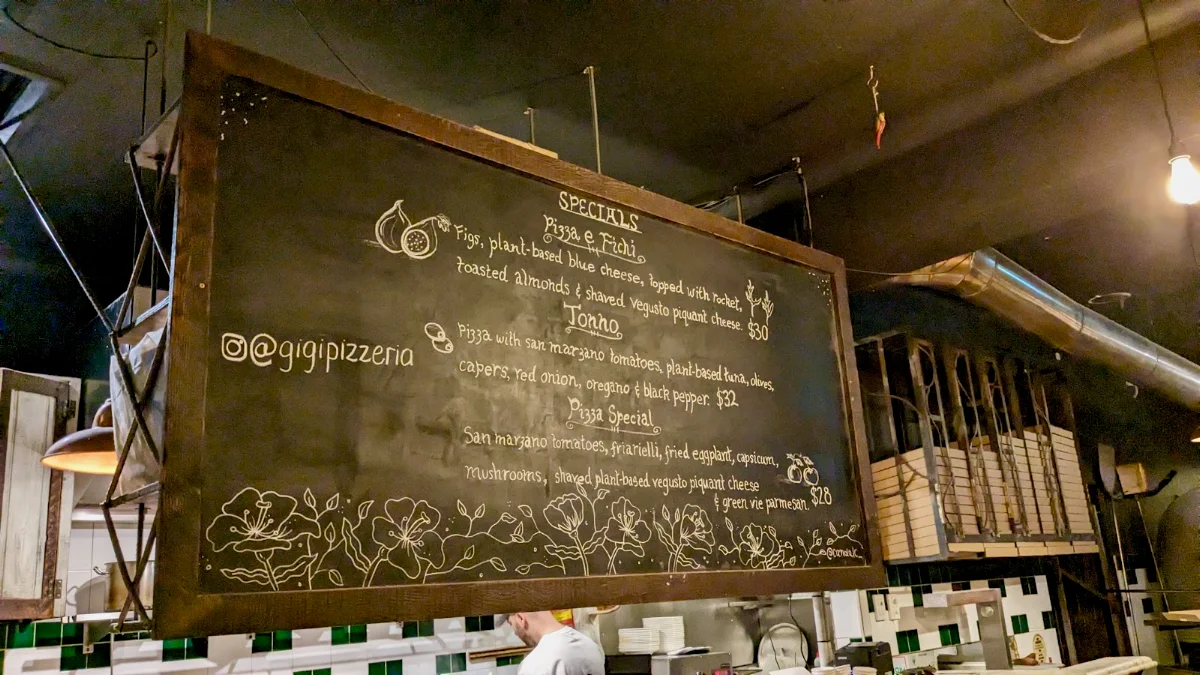 SPECIALS
Pizza e Fichi
Figs, plant-based blue cheese, topped with rocket,
toasted almonds & shaved vegusto piquant cheese. $30
Tonno
@gigipizzeria
Pizza with san marzano tomatoes, plant-based tuna, olives,
capers, red onion, oregano & black pepper. $32
Pizza Special
San marzano tomatoes, friarielli, fried eggplant, capsicum,
mushrooms, shaved plant-based vegusto piquant cheese
& green vie parmesan. $28